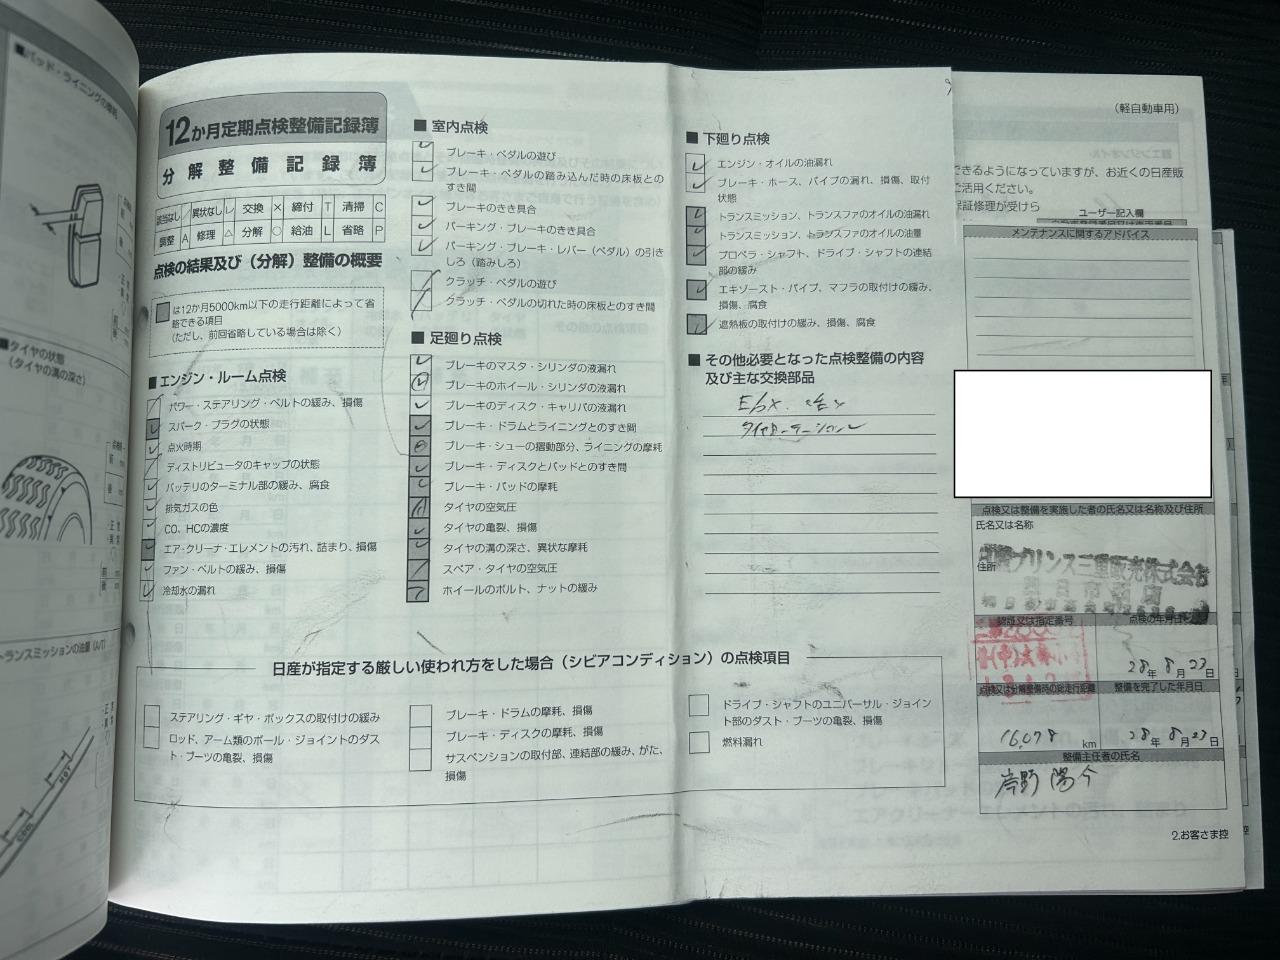 ■パッド・ライニングの摩耗
■タイヤの状態
(タイヤの溝の深さ)
トランスミッションの油量 (A/T)
HOT
COLD
12か月定期点検整備記録簿
分解整備記録簿
該当なし / 異状なし レ 交換 × 締付 T 清掃 C
調整 A 修理 △ 分解 ○ 給油 L 省略 P
点検の結果及び(分解)整備の概要
は12か月5000km以下の走行距離によって省
略できる項目
(ただし、前回省略している場合は除く)
■ エンジン・ルーム点検
パワー・ステアリング・ベルトの緩み、損傷
スパーク・プラグの状態
点火時期
ディストリビュータのキャップの状態
バッテリのターミナル部の緩み、腐食
排気ガスの色
CO、HCの濃度
エア・クリーナ・エレメントの汚れ、詰まり、損傷
ファン・ベルトの緩み、損傷
冷却水の漏れ
■ 室内点検
ブレーキ・ペダルの遊び
ブレーキ・ペダルの踏み込んだ時の床板との
すき間
ブレーキのきき具合
パーキング・ブレーキのきき具合
パーキング・ブレーキ・レバー(ペダル)の引き
しろ(踏みしろ)
クラッチ・ペダルの遊び
クラッチ・ペダルの切れた時の床板とのすき間
■ 足廻り点検
ブレーキのマスタ・シリンダの液漏れ
ブレーキのホイール・シリンダの液漏れ
ブレーキのディスク・キャリパの液漏れ
ブレーキ・ドラムとライニングとのすき間
ブレーキ・シューの摺動部分、ライニングの摩耗
ブレーキ・ディスクとパッドとのすき間
ブレーキ・パッドの摩耗
タイヤの空気圧
タイヤの亀裂、損傷
タイヤの溝の深さ、異状な摩耗
スペア・タイヤの空気圧
ホイールのボルト、ナットの緩み
■ 下廻り点検
エンジン・オイルの油漏れ
ブレーキ・ホース、パイプの漏れ、損傷、取付
状態
トランスミッション、トランスファのオイルの油漏れ
トランスミッション、トランスファのオイルの油量
プロペラ・シャフト、ドライブ・シャフトの連結
部の緩み
エキゾースト・パイプ、マフラの取付けの緩み、
損傷、腐食
遮熱板の取付けの緩み、損傷、腐食
■ その他必要となった点検整備の内容
及び主な交換部品
タイヤローテーション
日産が指定する厳しい使われ方をした場合(シビアコンディション)の点検項目
ステアリング・ギヤ・ボックスの取付けの緩み
ロッド、アーム類のボール・ジョイントのダス
ト・ブーツの亀裂、損傷
ブレーキ・ドラムの摩耗、損傷
ブレーキ・ディスクの摩耗、損傷
サスペンションの取付部、連結部の緩み、がた、
損傷
ドライブ・シャフトのユニバーサル・ジョイン
ト部のダスト・ブーツの亀裂、損傷
燃料漏れ
(軽自動車用)
できるようになっていますが、お近くの日産販
ご活用ください。
保証修理が受けら
ユーザー記入欄
メンテナンスに関するアドバイス
点検又は整備を実施した者の氏名又は名称及び住所
氏名又は名称
プリンス三重販売株式会社
住所
認証又は指定番号
点検の年月日
28年8月23日
点検又は分解整備時の総走行距離
整備を完了した年月日
16,078 km
28年8月23日
整備主任者の氏名
2.お客さま控